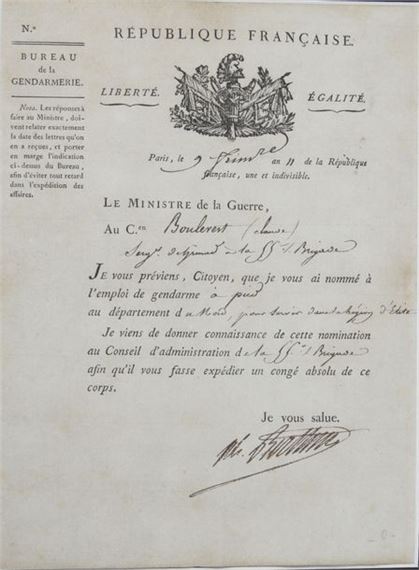 N.º
BUREAU
de la
GENDARMERIE.
Nota. Les réponses à
faire au Ministre, doi-
vent relater exactement
la date des lettres qu'on
en a reçues, et porter
en marge l'indication
ci-dessus du Bureau,
afin d'éviter tout retard
dans l'expédition des
affaires.
RÉPUBLIQUE FRANÇAISE.
LIBERTÉ.
ÉGALITÉ.
Paris, le 9 an 11 de la République
française, une et indivisible.
LE MINISTRE de la Guerre,
Au C.en Boulerest (claude)
à la Brigade
JE vous préviens, Citoyen, que je vous ai nommé à
l'emploi de gendarme à pied
au département du Nord, pour servir dans la légion d'Elite
Je viens de donner connaissance de cette nomination
au Conseil d'administration de la Brigade
afin qu'il vous fasse expédier un congé absolu de ce
corps.
Je vous salue.